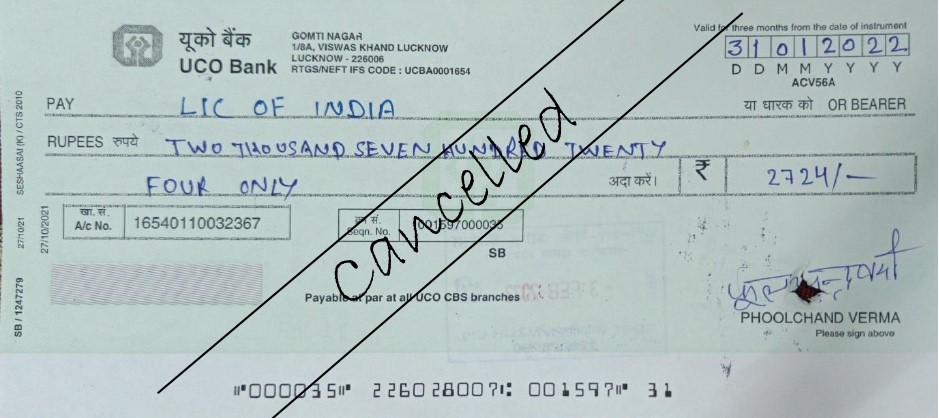 यूको बैंक
UCO Bank
GOMTI NAGAR
1/8A, VISWAS KHAND LUCKNOW
LUCKNOW - 226006
RTGS/NEFT IFS CODE : UCBA0001654
Valid for three months from the date of instrument
31012022
D D M M Y Y Y Y
ACV56A
PAY LIC OF INDIA या धारक को OR BEARER
RUPEES रुपये TWO THOUSAND SEVEN HUNDRED TWENTY
FOUR ONLY अदा करें। ₹ 2724/-
खा. सं.
A/c No. 16540110032367
क्र सं.
Seqn. No. 001597000035
SB
Cancelled
Payable at par at all UCO CBS branches
PHOOLCHAND VERMA
Please sign above
SESHASAI (K) / CTS 2010
27/10/21
27/10/2021
SB / 1247279
⑈000035⑈ 226028007⑆ 001597⑈ 31